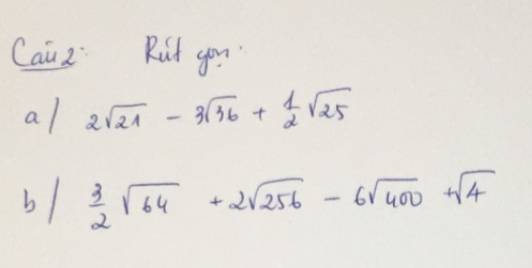 Câu 2: Rút gọn:
a/ 2√21 - 3√36 + 1/2 √25
b/ 3/2 √64 + 2√256 - 6√400 + √4